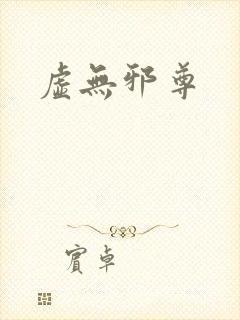 虛無邪尊
賓卓